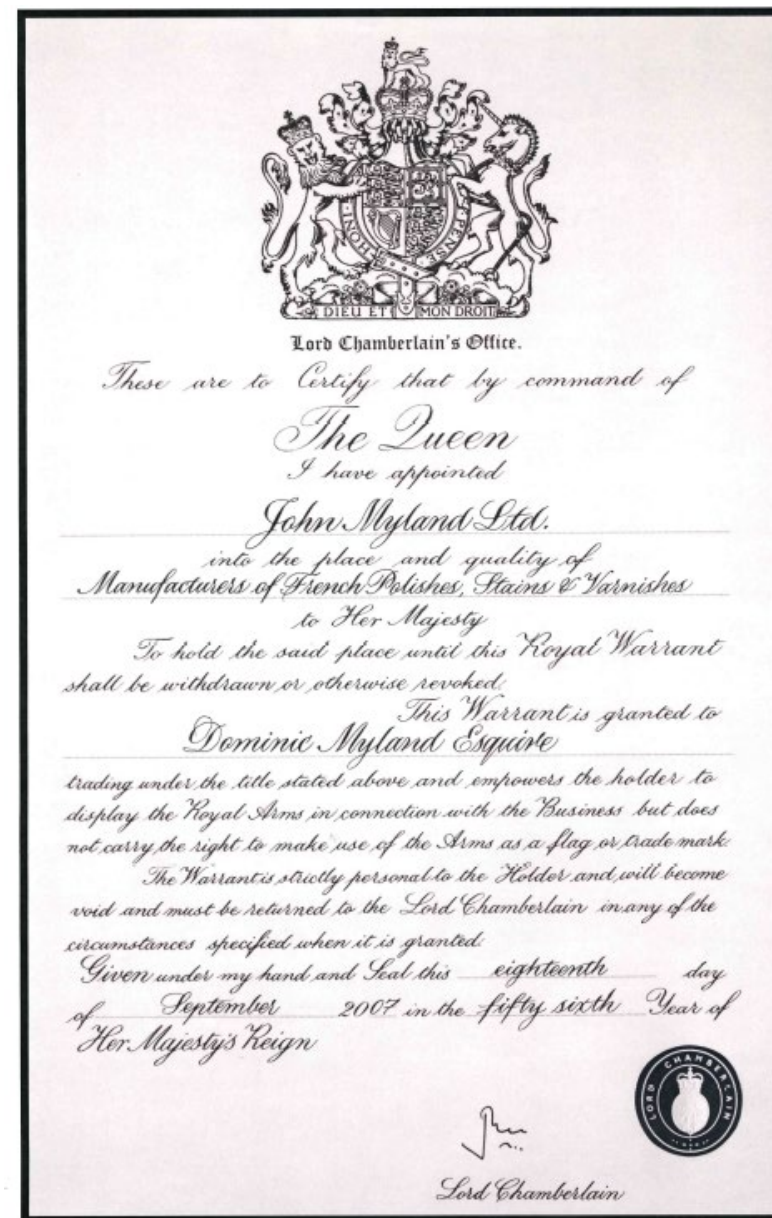 HONI PENSE
DIEU ET MON DROIT
Lord Chamberlain's Office.
These are to Certify that by command of
The Queen
I have appointed
John Myland Ltd.
into the place and quality of
Manufacturers of French Polishes, Stains & Varnishes
to Her Majesty
To hold the said place until this Royal Warrant
shall be withdrawn or otherwise revoked.
This Warrant is granted to
Dominic Myland Esquire
trading under the title stated above and empowers the holder to
display the Royal Arms in connection with the Business but does
not carry the right to make use of the Arms as a flag or trade mark.
The Warrant is strictly personal to the Holder and will become
void and must be returned to the Lord Chamberlain in any of the
circumstances specified when it is granted.
Given under my hand and Seal this eighteenth day
of September 2007 in the fifty sixth Year of
Her Majesty's Reign
LORD CHAMBERLAIN
Lord Chamberlain